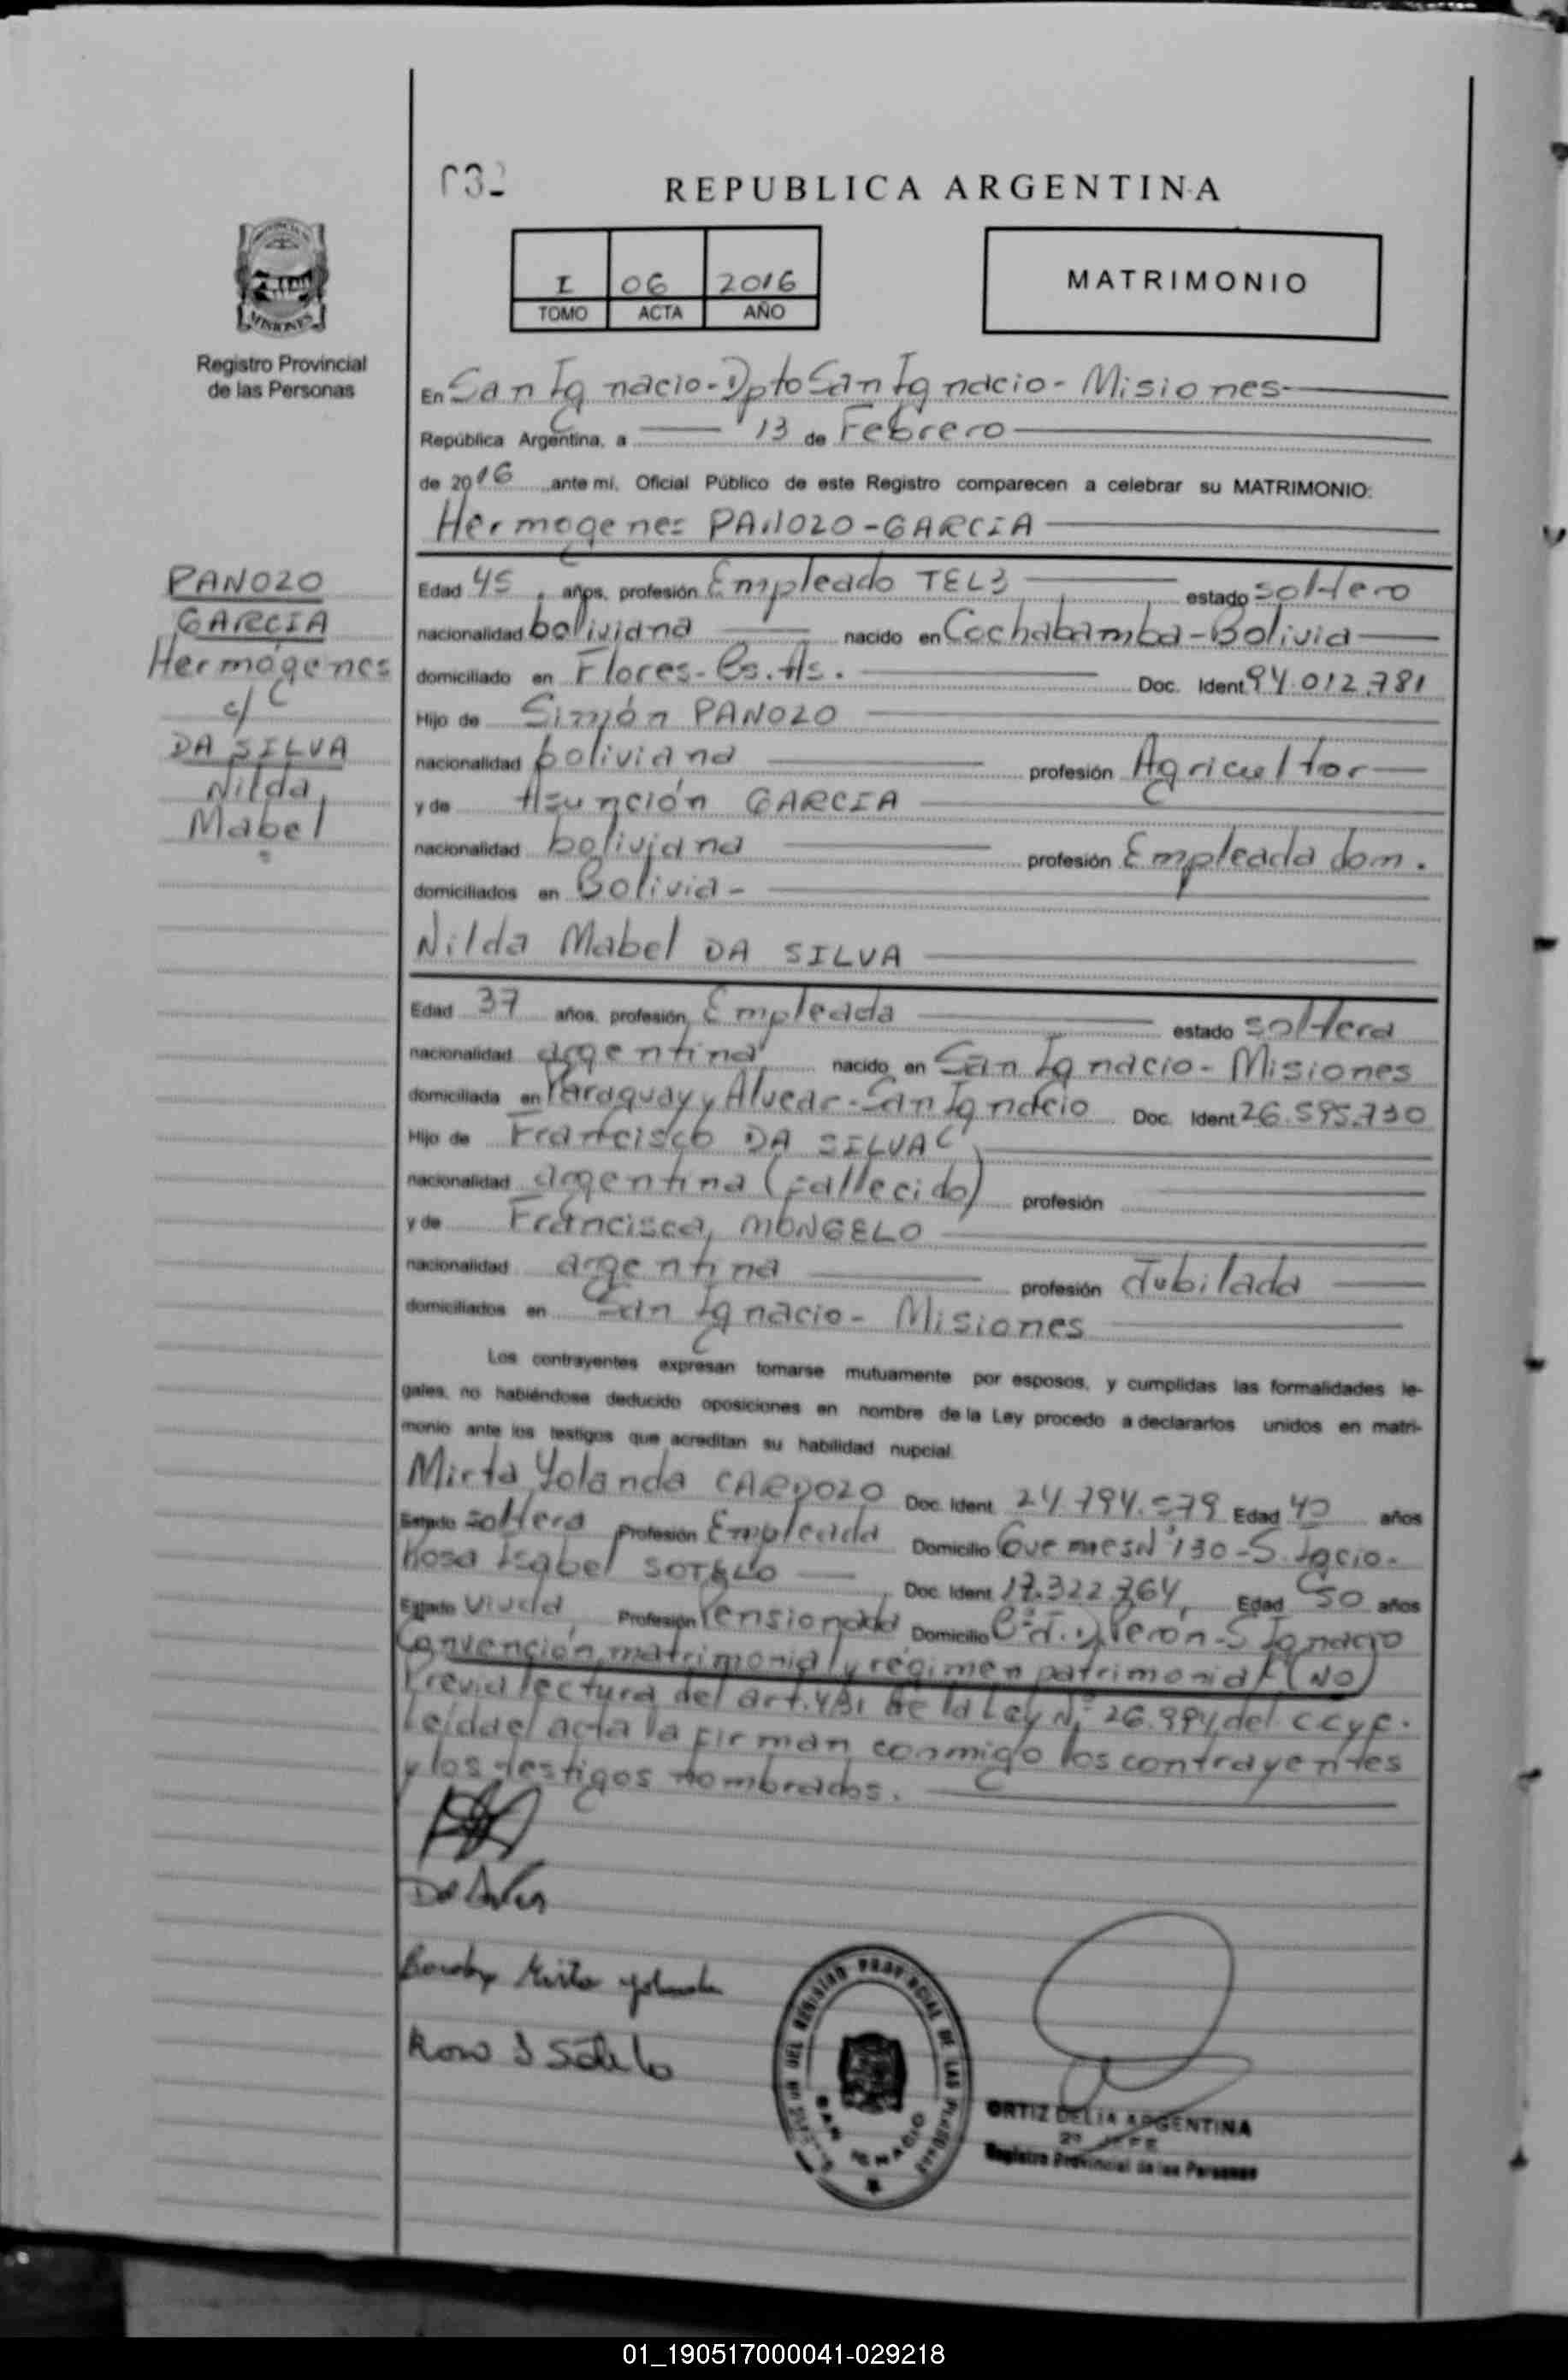 REPUBLICA ARGENTINA
MISIONES
Registro Provincial
de las Personas
I 06 2016
TOMO ACTA AÑO
MATRIMONIO
En San Ignacio - Dpto San Ignacio - Misiones
República Argentina, a 13 de Febrero
de 2016 ante mi, Oficial Público de este Registro comparecen a celebrar su MATRIMONIO:
Hermogenes PANOZO-GARCIA
PANOZO
GARCIA
Hermógenes
c/
DA SILVA
Nilda
Mabel
Edad 45 años, profesión Empleado estado soltero
nacionalidad boliviana nacido en Cochabamba-Bolivia
domiciliado en Flores-Bs.As. Doc. Ident 94.012.781
Hijo de Simón PANOZO
nacionalidad boliviana profesión Agricultor
y de Asunción GARCIA
nacionalidad boliviana profesión Empleada dom.
domiciliados en Bolivia-
Nilda Mabel DA SILVA
Edad 37 años, profesión Empleada estado soltera
nacionalidad argentina nacido en San Ignacio - Misiones
domiciliada en Paraguay y Alvear-San Ignacio Doc. Ident 26.595.730
Hijo de Francisco DA SILVA
nacionalidad argentina (fallecido) profesión
y de Francisca MONGELO
nacionalidad argentina profesión Jubilada
domiciliados en San Ignacio - Misiones
Los contrayentes expresan tomarse mutuamente por esposos, y cumplidas las formalidades le-
gales, no habiéndose deducido oposiciones en nombre de la Ley procedo a declararlos unidos en matri-
monio ante los testigos que acreditan su habilidad nupcial.
Mirta Yolanda CARDOZO Doc. Ident 24.794.579 Edad 40 años
Estado soltera Profesión Empleada Domicilio Guemes N° 130-S.
Rosa Isabel SOTELO Doc. Ident 17.322.764, Edad 50 años
Estado Viuda Profesión Pensionada Domicilio B° J.D.Peron-S Ignacio
Convención matrimonial y régimen patrimonial (NO)
Previa lectura del art. 431 de la Ley N° 26.994 del CCyC.
Leída el acta la firman conmigo los contrayentes
y los testigos nombrados.
Mirta Yolanda
Rosa I Sotelo
REGISTRO PROVINCIAL DE LAS PERSONAS
SAN IGNACIO
ORTIZ DELIA ARGENTINA
2° JEFE
Registro Provincial de las Personas
01_190517000041-029218